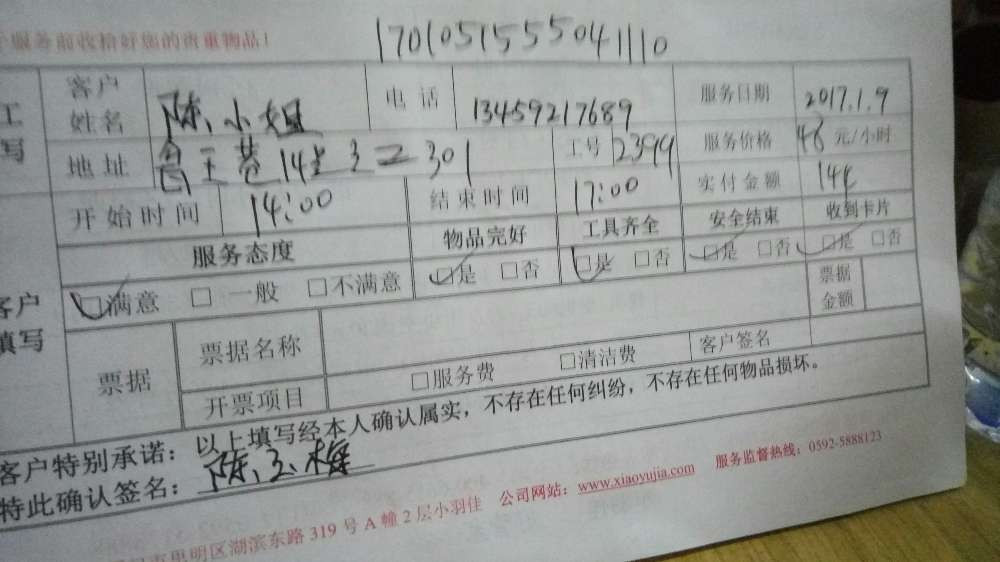 服务前收拾好您的贵重物品!
1701051555041110
工
写
客户
姓名 陈小姐 电话 13459217689 服务日期 2017.1.9
地址 14 301 工号 2399 服务价格 48 元/小时
开始时间 14:00 结束时间 17:00 实付金额 144
服务态度 物品完好 工具齐全 安全结束 收到卡片
□满意 □一般 □不满意 □是 □否 □是 □否 □是 □否 □是 □否
客户
填写
票据 票据名称 票据
金额
开票项目 □服务费 □清洁费 客户签名
客户特别承诺:以上填写经本人确认属实,不存在任何纠纷,不存在任何物品损坏。
特此确认签名:陈玉梅
明区湖滨东路 319 号 A 幢 2 层小羽佳 公司网站:www.xiaoyujia.com 服务监督热线:0592-5888123